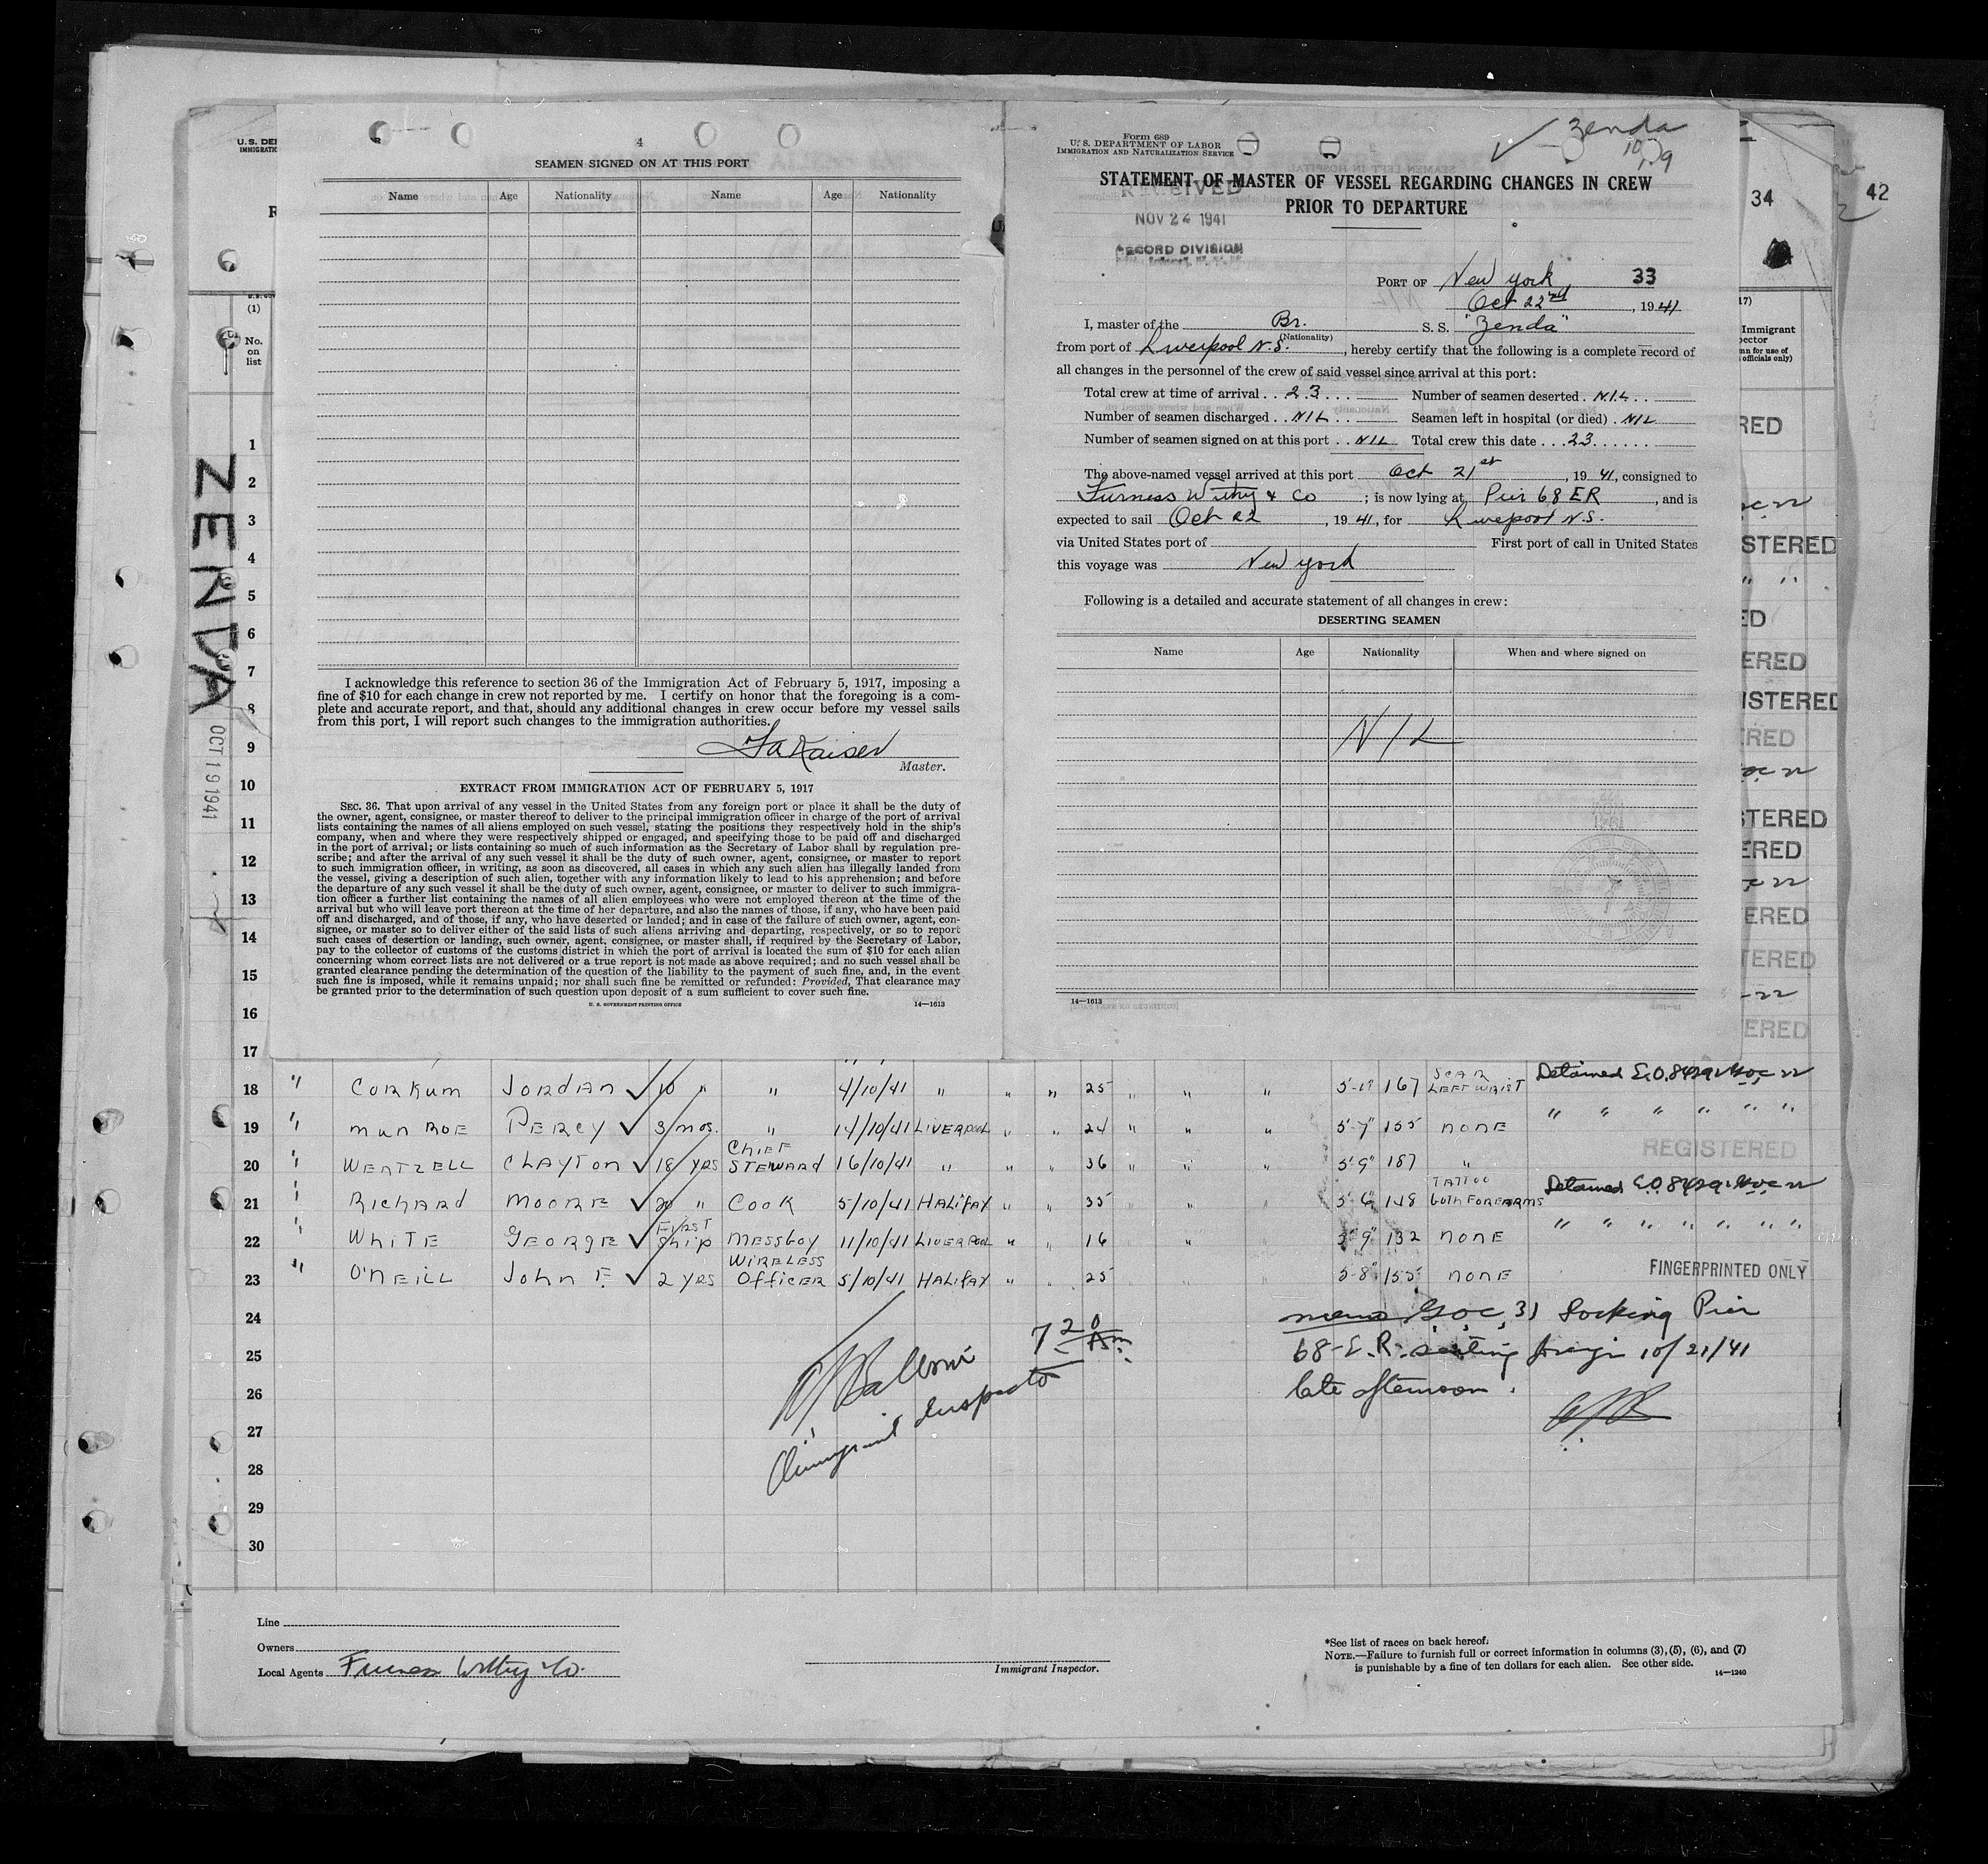 4
SEAMEN SIGNED ON AT THIS PORT
Name Age Nationality Name Age Nationality
I acknowledge this reference to section 36 of the Immigration Act of February 5, 1917, imposing a
fine of $10 for each change in crew not reported by me. I certify on honor that the foregoing is a com-
plete and accurate report, and that, should any additional changes in crew occur before my vessel sails
from this port, I will report such changes to the immigration authorities.
Master.
EXTRACT FROM IMMIGRATION ACT OF FEBRUARY 5, 1917
SEC. 36. That upon arrival of any vessel in the United States from any foreign port or place it shall be the duty of
the owner, agent, consignee, or master thereof to deliver to the principal immigration officer in charge of the port of arrival
lists containing the names of all aliens employed on such vessel, stating the positions they respectively hold in the ship's
company, when and where they were respectively shipped or engaged, and specifying those to be paid off and discharged
in the port of arrival; or lists containing so much of such information as the Secretary of Labor shall by regulation pre-
scribe; and after the arrival of any such vessel it shall be the duty of such owner, agent, consignee, or master to report
to such immigration officer, in writing, as soon as discovered, all cases in which any such alien has illegally landed from
the vessel, giving a description of such alien, together with any information likely to lead to his apprehension; and before
the departure of any such vessel it shall be the duty of such owner, agent, consignee, or master to deliver to such immigra-
tion officer a further list containing the names of all alien employees who were not employed thereon at the time of the
arrival but who will leave port thereon at the time of her departure, and also the names of those, if any, who have been paid
off and discharged, and of those, if any, who have deserted or landed; and in case of the failure of such owner, agent, con-
signee, or master so to deliver either of the said lists of such aliens arriving and departing, respectively, or so to report
such cases of desertion or landing, such owner, agent, consignee, or master shall, if required by the Secretary of Labor,
pay to the collector of customs of the customs district in which the port of arrival is located the sum of $10 for each alien
concerning whom correct lists are not delivered or a true report is not made as above required; and no such vessel shall be
granted clearance pending the determination of the question of the liability to the payment of such fine, and, in the event
such fine is imposed, while it remains unpaid; nor shall such fine be remitted or refunded: Provided, That clearance may
be granted prior to the determination of such question upon deposit of a sum sufficient to cover such fine.
U. S. GOVERNMENT PRINTING OFFICE 14—1613
Form 689
U. S. DEPARTMENT OF LABOR
IMMIGRATION AND NATURALIZATION SERVICE
Zenda
STATEMENT OF MASTER OF VESSEL REGARDING CHANGES IN CREW
PRIOR TO DEPARTURE
RECEIVED
NOV 24 1941
RECORD DIVISION
PORT OF New York 33
Oct 22nd, 1941
I, master of the Br. S. S. "Zenda"
(Nationality)
from port of Liverpool N.S., hereby certify that the following is a complete record of
all changes in the personnel of the crew of said vessel since arrival at this port:
Total crew at time of arrival . . 23 . . . Number of seamen deserted . NIL . .
Number of seamen discharged . . NIL . . Seamen left in hospital (or died) . NIL
Number of seamen signed on at this port . . NIL Total crew this date . . . 23 . . . . . .
The above-named vessel arrived at this port Oct 21st, 1941, consigned to
Furness Withy & Co ; is now lying at Pier 68 ER, and is
expected to sail Oct 22, 1941, for Liverpool N.S.
via United States port of First port of call in United States
this voyage was New York
Following is a detailed and accurate statement of all changes in crew:
DESERTING SEAMEN
Name Age Nationality When and where signed on
NIL
14—1613
34
42
ZENDA
OCT 19 1941
U.S. DE
IMMIGRATIO
(1)
No.
on
list
1
2
3
4
5
6
7
8
9
10
11
12
13
14
15
16
17
18 " CORKUM JORDAN ✓ 10 " " 4/10/41 " " " 25 " " " 167 SCAR LEFT WRIST Detained E.O. 8429
19 " MUNROE PERCY ✓ 3 mos. " 14/10/41 LIVERPOOL " " 24 " " " 5-7" 155 NONE " " " " " "
20 " WENTZELL CLAYTON ✓ 18 YRS CHIEF STEWARD 16/10/41 " " " 36 " " " 5-9" 187 " REGISTERED
21 " RICHARD MOORE ✓ 20 " COOK 5/10/41 HALIFAX " " 35 " " " 5-6" 148 TATTOO BOTH FOREARMS Detained E.O. 8429
22 " WHITE GEORGE ✓ FIRST SHIP MESSBOY 11/10/41 LIVERPOOL " " 16 " 5-9" 132 NONE " " " " " " "
23 " O'NEILL JOHN F ✓ 2 YRS WIRELESS OFFICER 5/10/41 HALIFAX " " 25 5-8" 155 NONE FINGERPRINTED ONLY
24
25
26
27
28
29
30
720 Am
Immigrant Inspector
Docking Pier
68-E.R. sailing foreign 10/21/41
late afternoon.
Line
Owners
Local Agents Furness Withy & Co.
Immigrant Inspector.
*See list of races on back hereof.
NOTE.—Failure to furnish full or correct information in columns (3), (5), (6), and (7)
is punishable by a fine of ten dollars for each alien. See other side.
14—1240